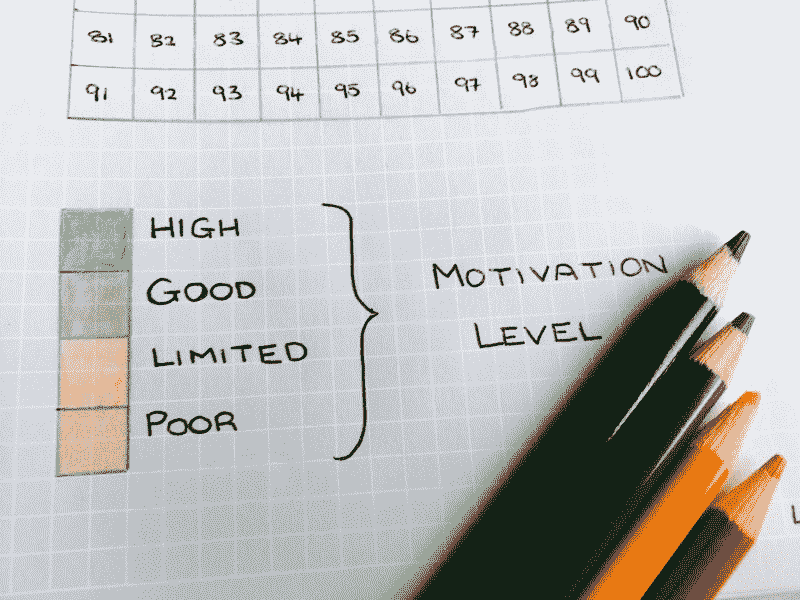 81 82 83 84 85 86 87 88 89 90
91 92 93 94 95 96 97 98 99 100
HIGH
GOOD
LIMITED
POOR
MOTIVATION
LEVEL